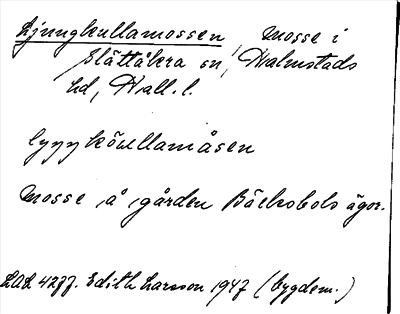 Ljungkullamossen Mosse i
Slättåkra sn, Halmstads
hd, Hall. l.
Mosse å gården Bäckabols ägor.
LAL 4277. Edith Larsson 1947 (bygdem.)